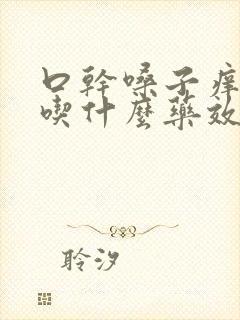 口幹嗓子痒
喫什麼藥效
聆汐